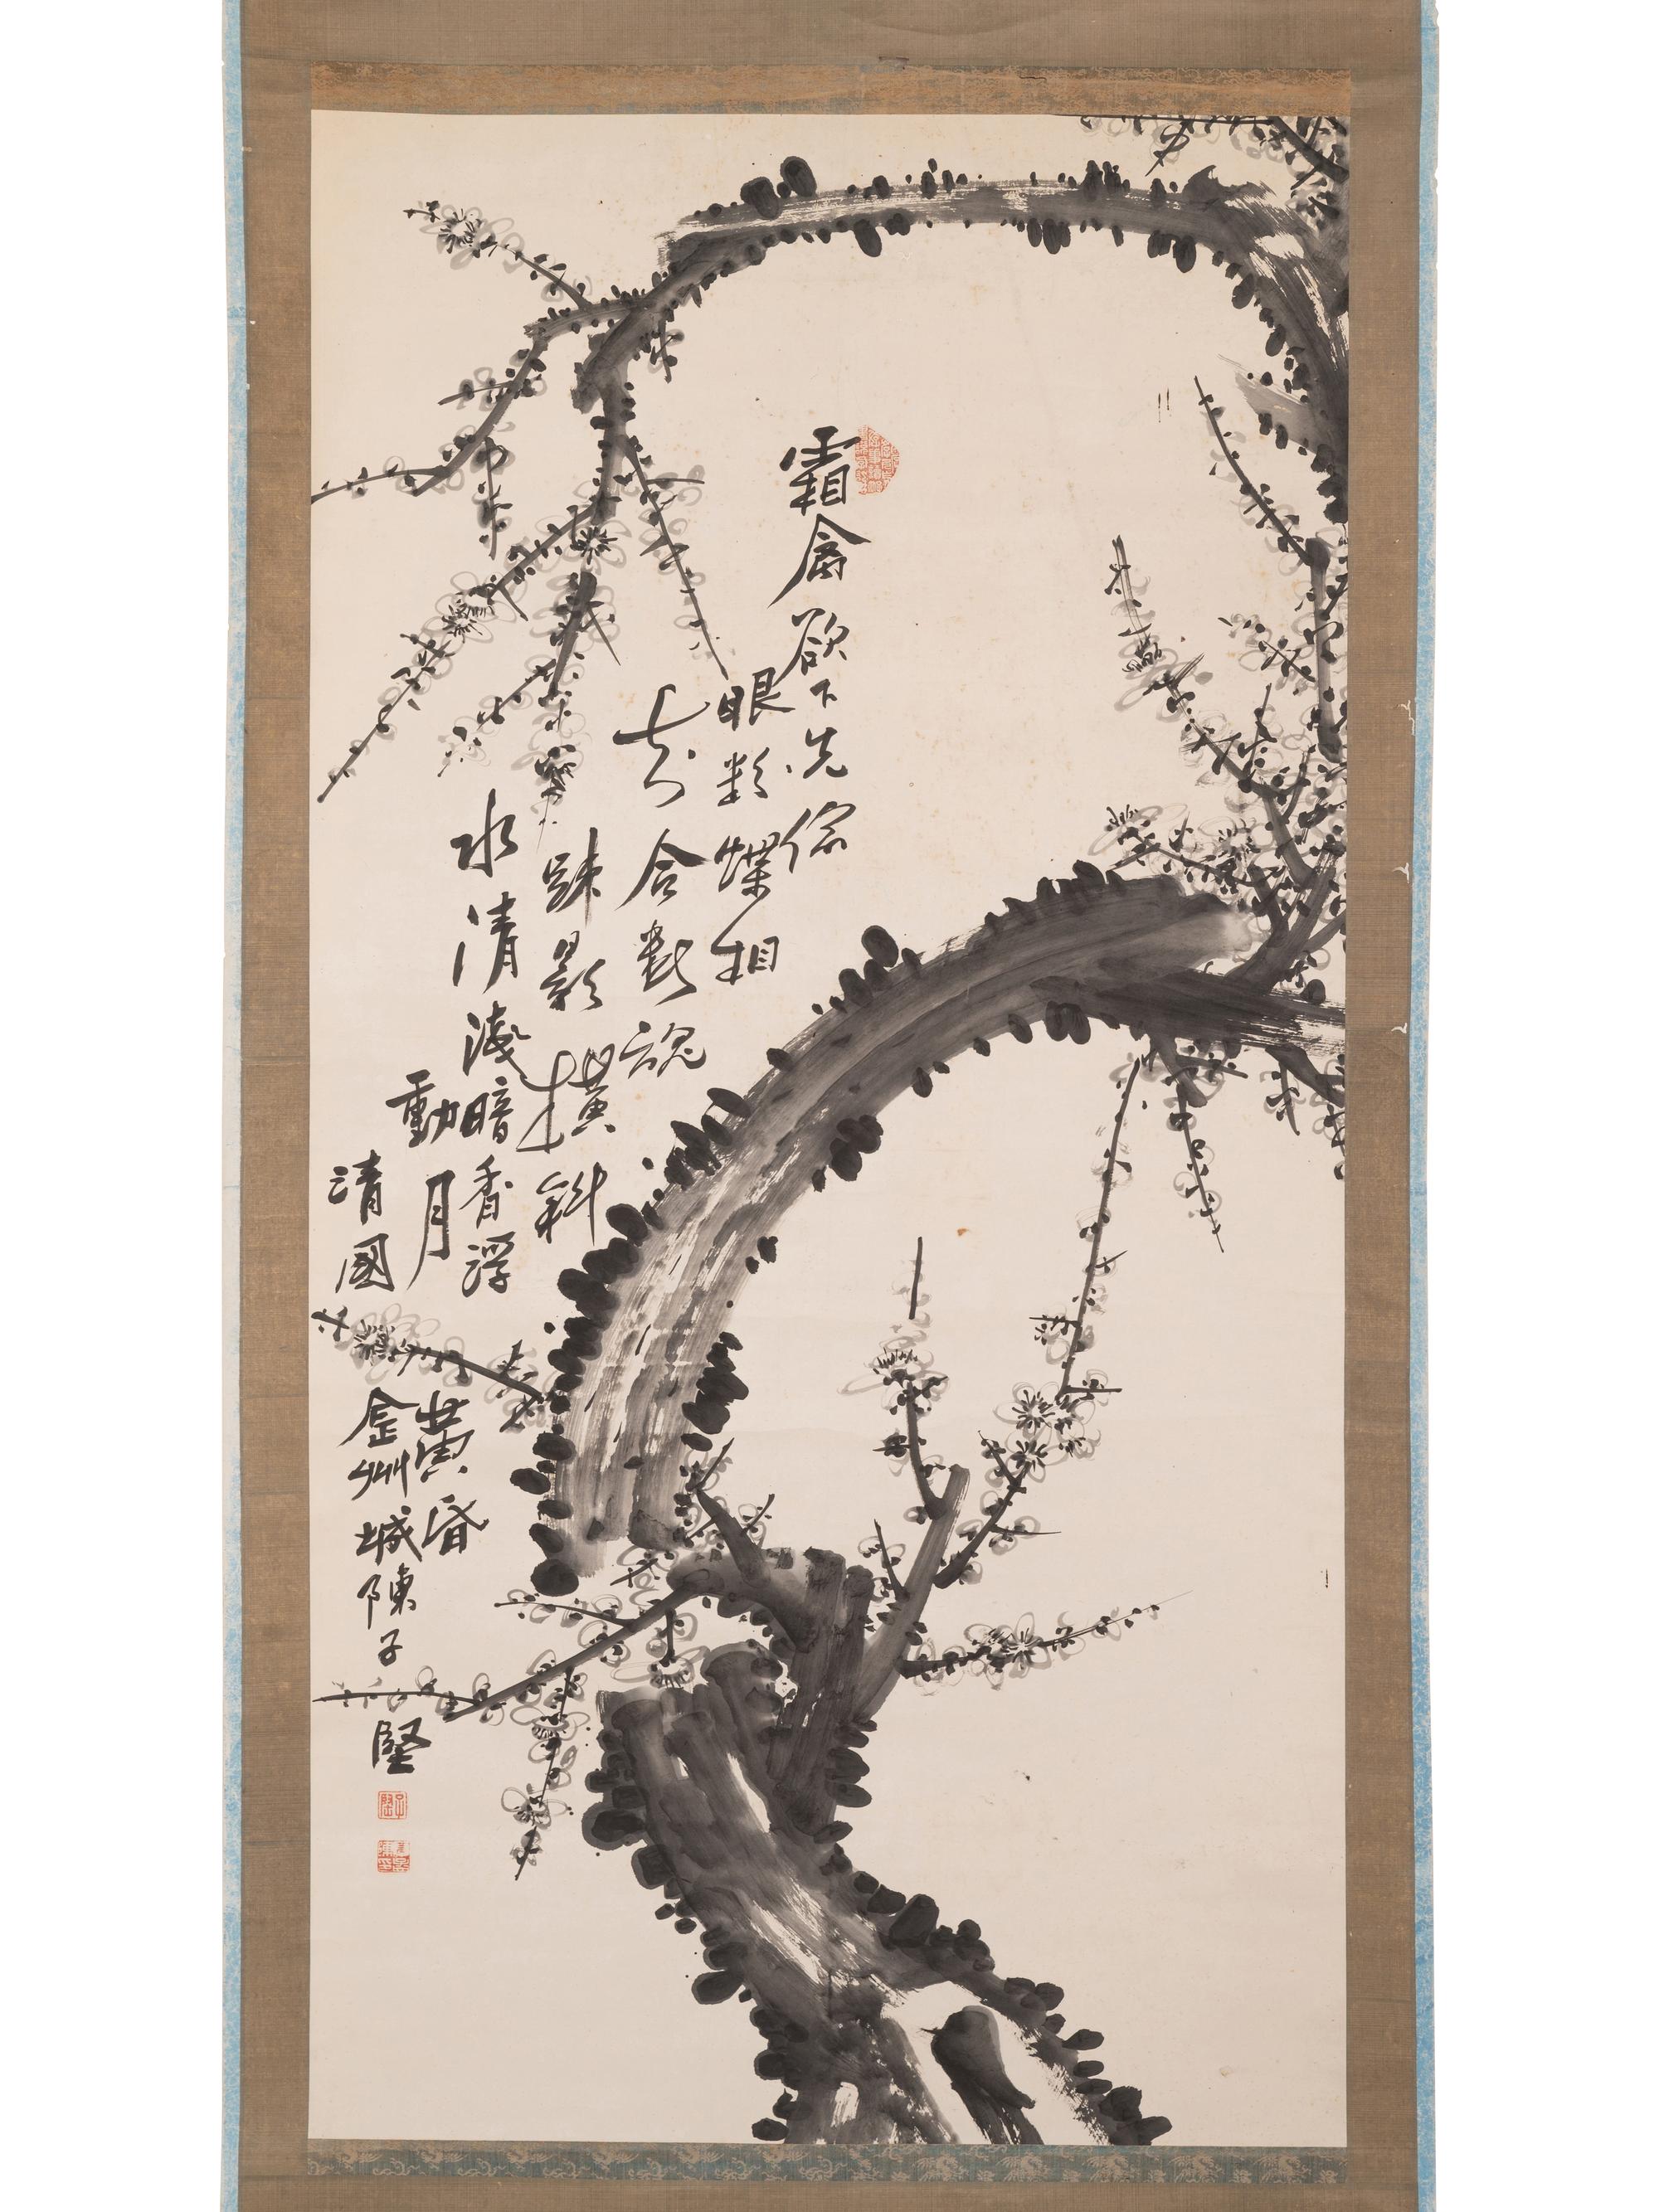 霜禽欲下先偷
眼粉蝶相
知合斷魂
踈影橫斜
水清淺暗香浮
動月黃昏
清國金州城陳子堅